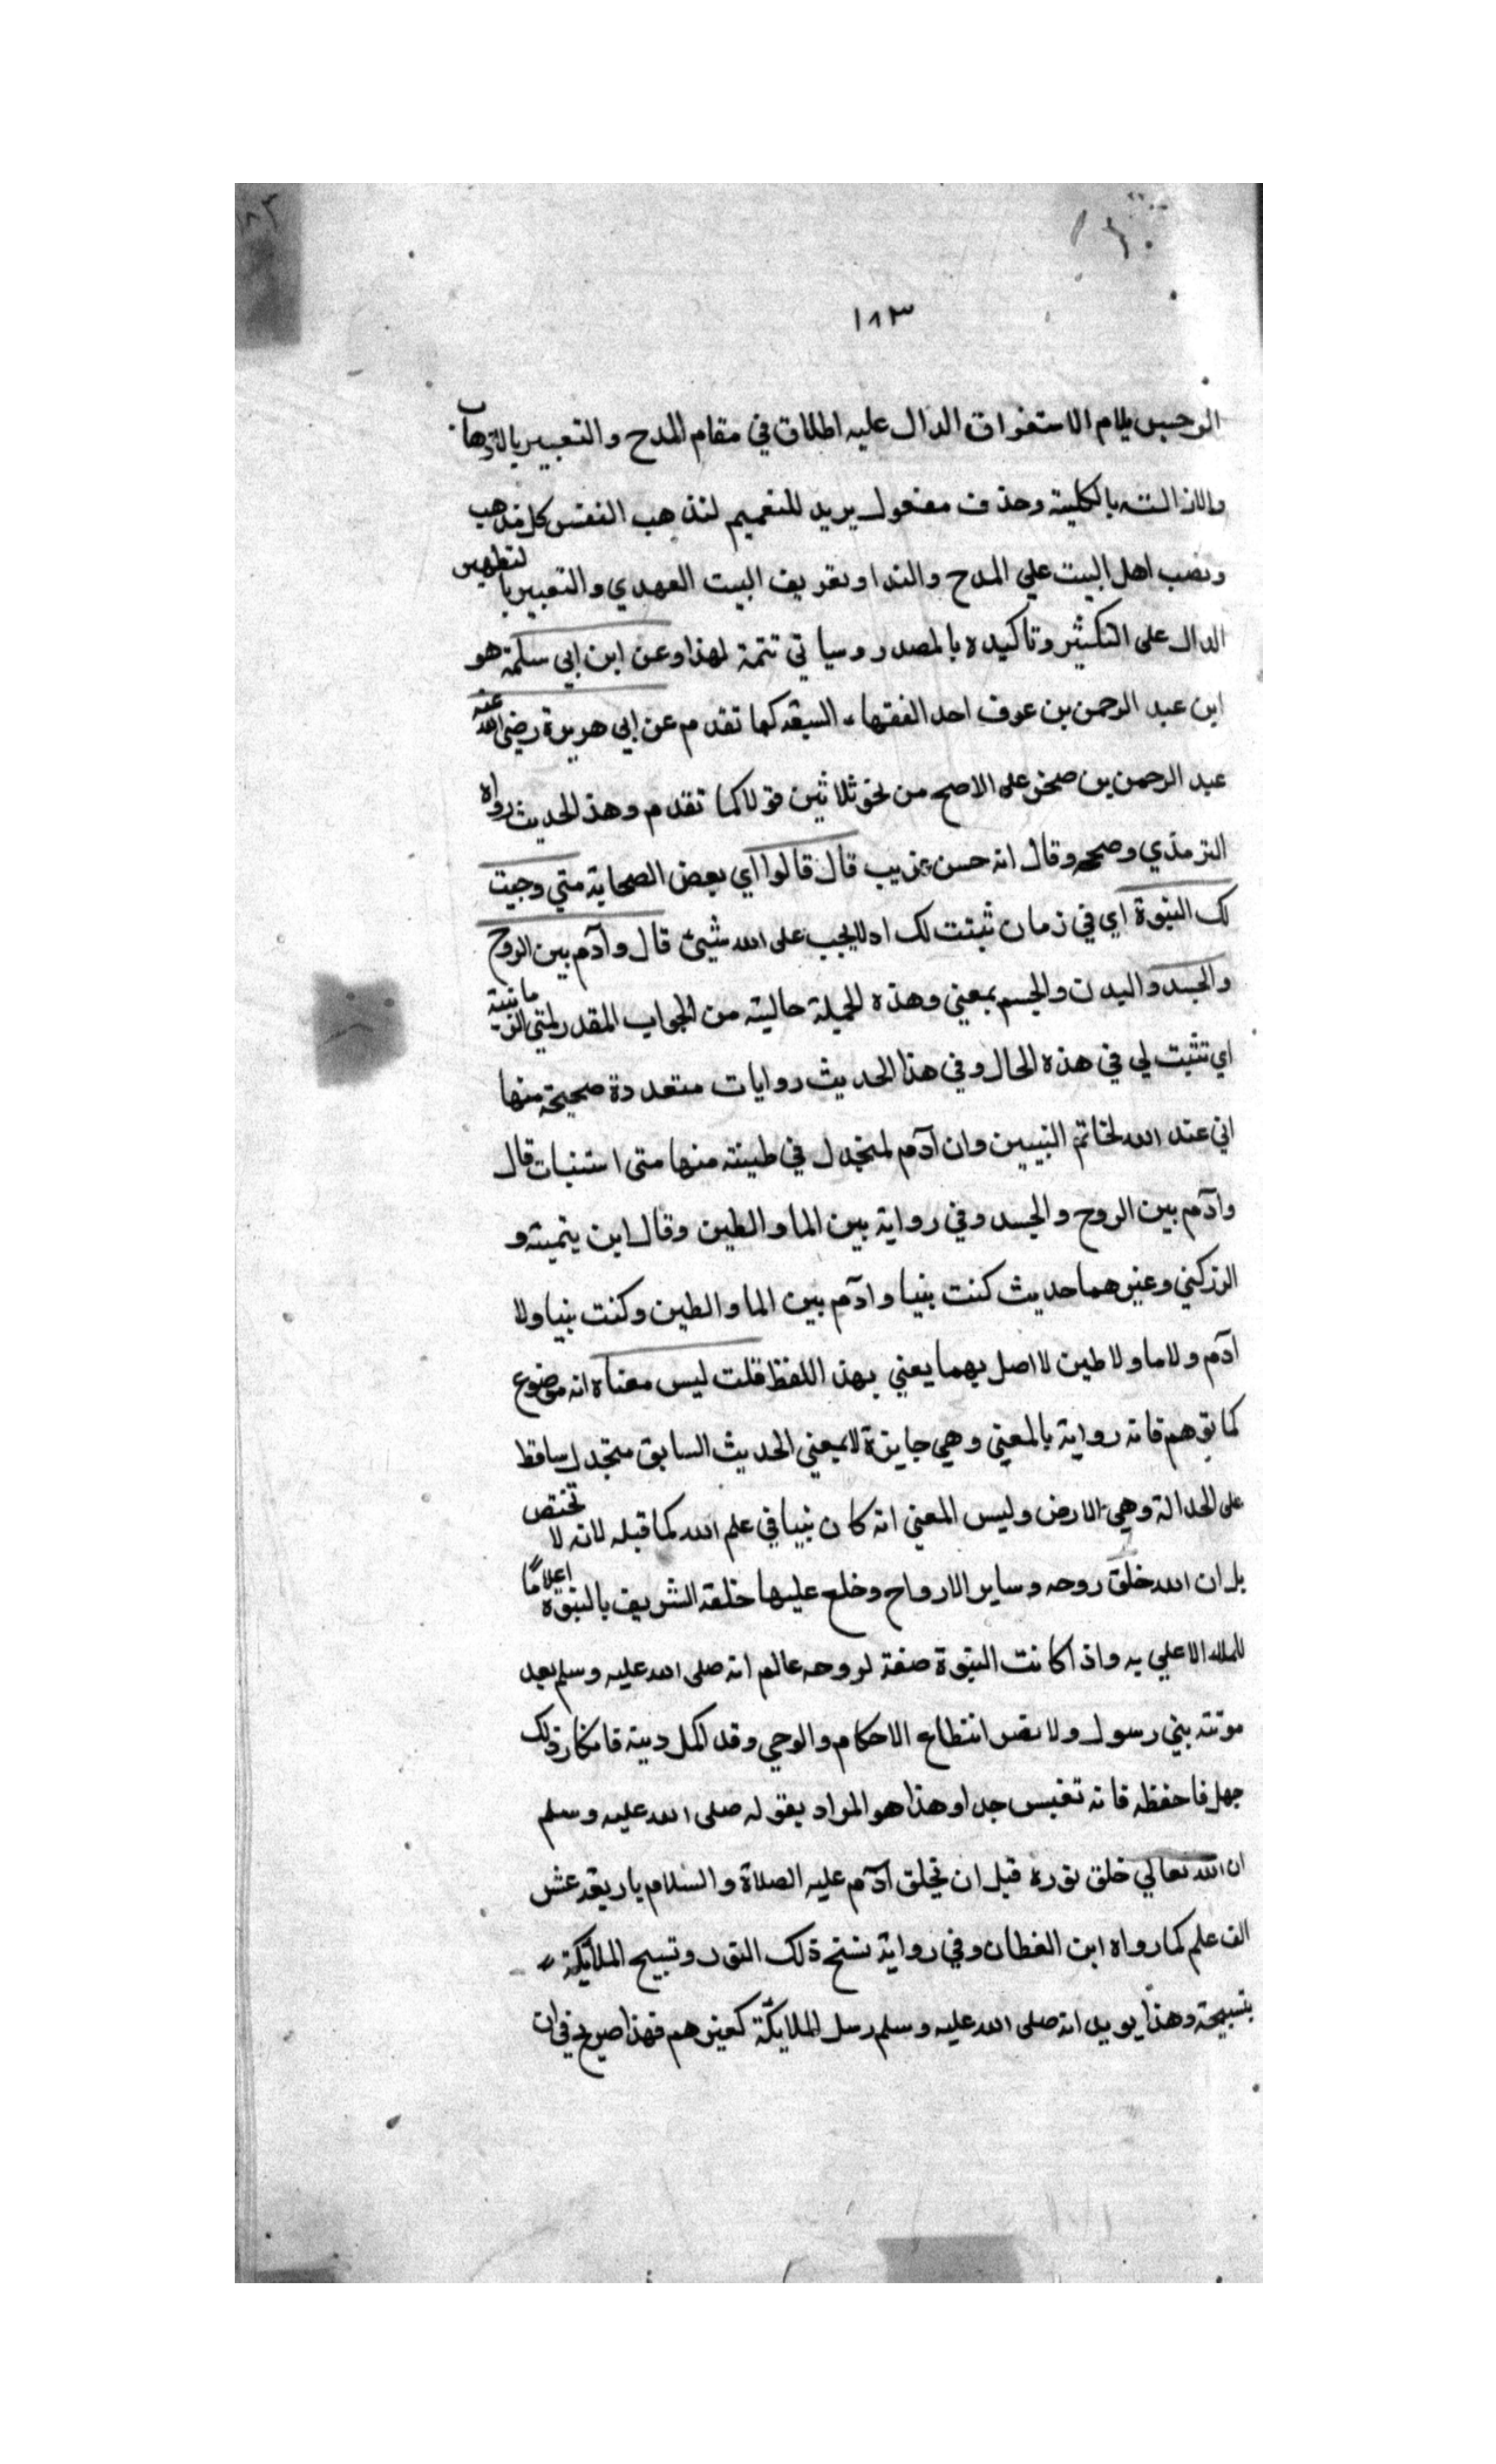 ١٨٣
الرجس بلام الاستغراق الدال عليه اطلاق في مقام المدح والتعبير بالاذهاب
والازالته بالكلية وحذف مفعول يريد للتعميم لتذهب النفس كل مذهب
ونصب اهل البيت علي المدح والندا وتعريف البيت العهدي والتعبير بالتطهير
الدال على التكثير وتاكيده بالمصدر وسياتي تتمة لهذا وعن ابن ابي سلمة هو
ابن عبد الرحمن بن عوف احد الفقهاء السبعة كما تقدم عن ابي هريرة رضي الله عنه
عبد الرحمن بن صخر على الاصح من نحو ثلاثين قولا كما تقدم وهذ الحديث رواه
الترمذي وصححه وقال انه حسن غريب قال قالوا اي بعض الصحابة متي وجبت
لك النبوة اي في زمان ثبتت لك اذ لا يجب على الله شيئ قال وآدم بين الروح
والجسد والبدن والجسم بمعني وهذه الجملة حالية من الجواب المقدر لمتي الزمانية
اي تثبت لي في هذه الحال وفي هذا الحديث روايات متعددة صحيحة منها
اني عند الله لخاتم النبيين وان آدم لمنجدل في طينته منها متى استنبات قال
وآدم بين الروح والجسد وفي رواية بين الما والطين وقال ابن يتمية و
الزركني وغيرهما حديث كنت بنيا وادم بين الما والطين وكنت بنيا ولا
ادم ولا ما ولا طين لا اصل بهما يعني بهذا اللفظ قلت ليس معناه انه موضوع
كما توهم فانه رواية بالمعني وهي جايزة لا بمعني الحديث السابق منجدل ساقط
على الجدالة وهي الارض وليس المعني انه كان نبيا في علم الله كما قبله لانه لا تختص
بل ان الله خلق روحه وساير الارواح وخلع عليها خلعة الشريف بالنبوة اعلامًا
للملاء الاعلي به واذا كانت النبوة صفة لروحه عالم انه صلى الله عليه وسلم بعد
موته بني رسول ولا يضر انقطاع الاحكام والوحي وقد اكمل دينه فانكار ذلك
جهل فاحفظه فانه نفيس جدا وهذا هو المراد بقوله صلى الله عليه وسلم
ان الله تعالي خلق نوره قبل ان يخلق آدم عليه الصلاة والسلام باربعة عشر
الف علم كما رواه ابن القطان وفي رواية تسبح ذلك النور وتسبح الملائكة
بتسبيحه وهذا يويد انه صلى الله عليه وسلم رسل الملايكة كغيرهم فهذا صريح في ان